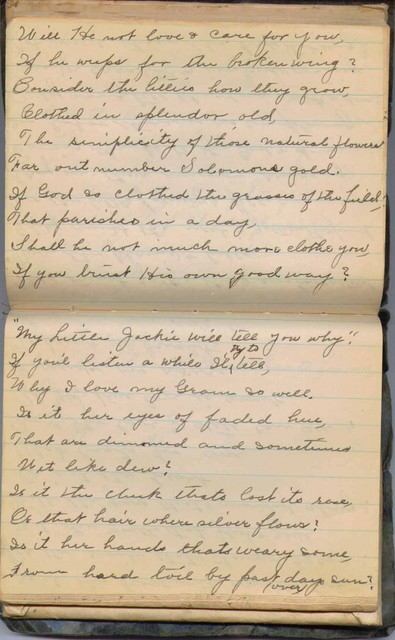 Will He not love & care for you,
If he weeps for the broken wing?
Consider the lillies how they grow,
Clothed in splendor old,
The simplicity of those natural flowers
Far out number Solomons gold.
If God so clothed the grasses of the field,
That parishes in a day,
Shall he not much more clothe you,
If you trust His own good way?
"My Little Jackie will tell you why".
If you'll listen a while I'll try to tell,
Why I love my Gram so well.
Is it her eyes of faded hue,
That are dimmed and sometimes
Wet like dew?
Is it the cheek thats lost its rose,
Or that hair where silver flows?
Is it her hands thats weary some,
From hard toil by past days over sun?